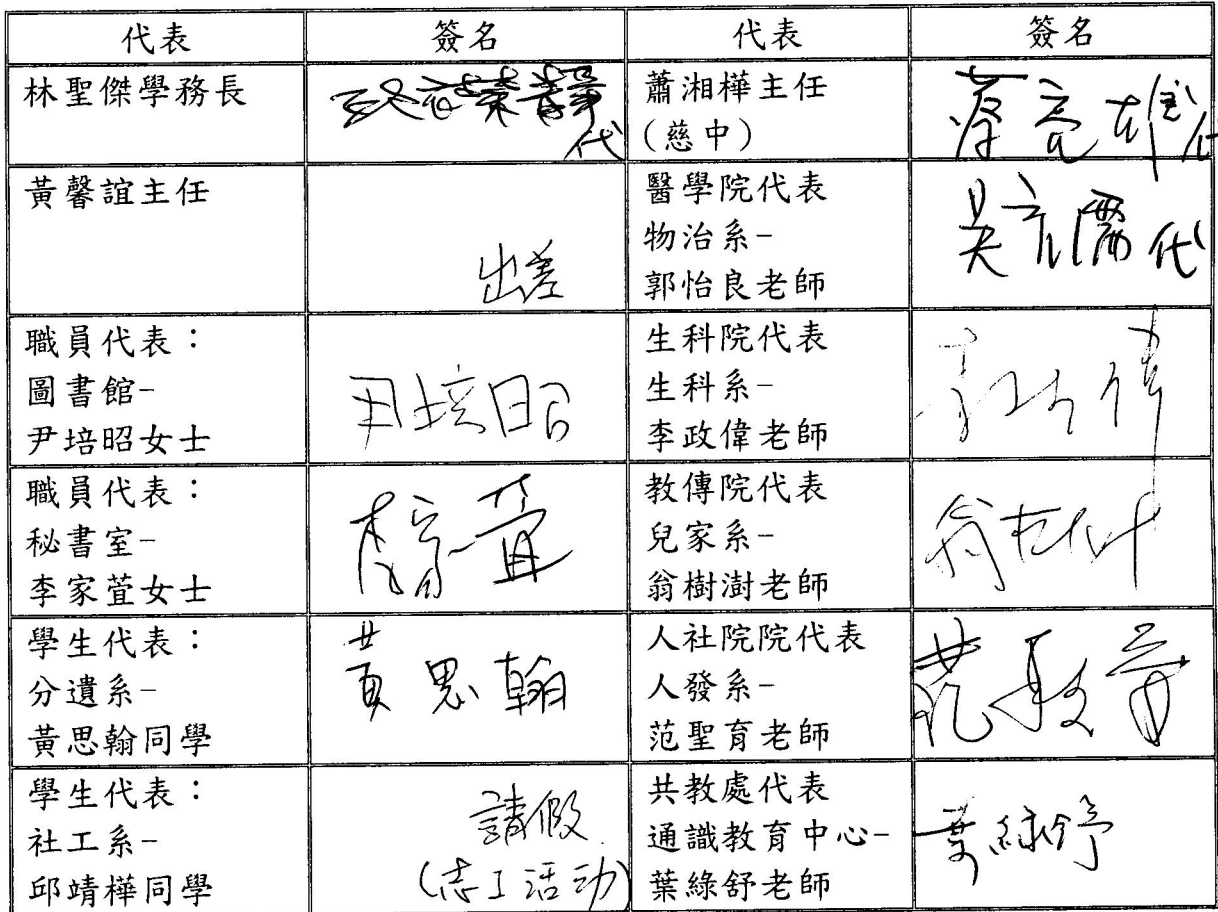 代表 簽名 代表 簽名
林聖傑學務長
代
蕭湘樺主任
(慈中)
蔡亮雄代
黃馨誼主任
出差
醫學院代表
物治系-
郭怡良老師
代
職員代表：
圖書館-
尹培昭女士
尹培昭
生科院代表
生科系-
李政偉老師
職員代表：
秘書室-
李家萓女士
李家萓
教傳院代表
兒家系-
翁樹澍老師
學生代表：
分遺系-
黃思翰同學
黃思翰
人社院院代表
人發系-
范聖育老師
學生代表：
社工系-
邱靖樺同學
請假
(志工活動)
共教處代表
通識教育中心-
葉綠舒老師
葉綠舒